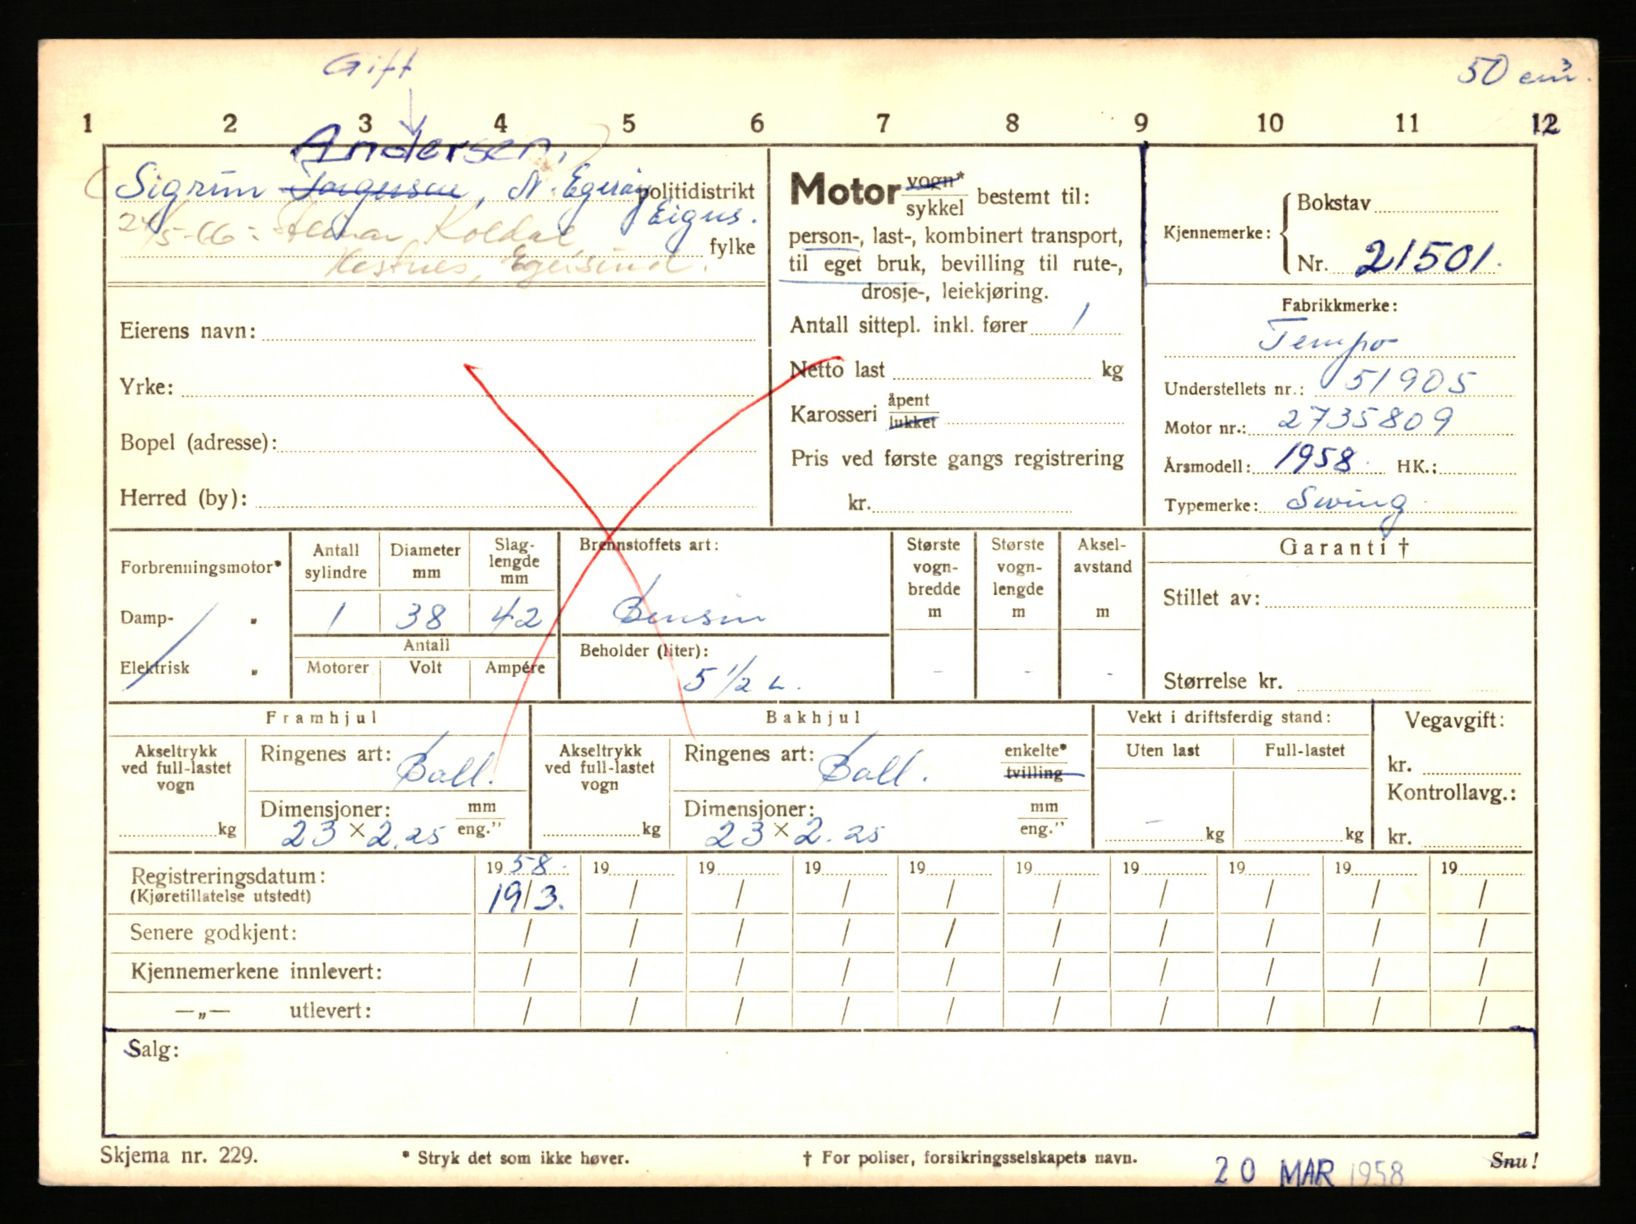 Gift
50 cm³.
1 2 3 4 5 6 7 8 9 10 11 12
Andersen,
Sigrun Jørgensen, N. Egerøy politidistrikt
Eigus.
24/5-66: Koldal fylke
Hestnes, Egersund.
Eierens navn:
Yrke:
Bopel (adresse):
Herred (by):
Motor vogn* sykkel bestemt til:
person-, last-, kombinert transport,
til eget bruk, bevilling til rute-,
drosje-, leiekjøring.
Antall sittepl. inkl. fører 1
Netto last kg
Karosseri åpent lukket
Pris ved første gangs registrering
kr.
Kjennemerke: Bokstav
Nr. 21501.
Fabrikkmerke:
Tempo
Understellets nr.: 51905
Motor nr.: 2735809
Årsmodell: 1958 HK.:
Typemerke: Swing
Forbrenningsmotor*
Damp- „
Elektrisk „
Antall sylindre
Diameter mm
Slag-lengde mm
1 38 42
Antall
Motorer Volt Ampére
Brennstoffets art:
Bensin
Beholder (liter):
5 1/2 L.
Største vogn-bredde m
Største vogn-lengde m
Aksel-avstand m
- - -
Garanti †
Stillet av:
Størrelse kr.
Framhjul
Akseltrykk ved full-lastet vogn
kg
Ringenes art: Ball.
Dimensjoner: mm eng."
23 × 2.25
Bakhjul
Akseltrykk ved full-lastet vogn
kg
Ringenes art: Ball. enkelte* tvilling
Dimensjoner: mm eng."
23 × 2.25
Vekt i driftsferdig stand:
Uten last Full-lastet
- kg kg
Vegavgift:
kr.
Kontrollavg.:
kr.
Registreringsdatum: 19 58. 19 19 19 19 19 19 19 19 19
(Kjøretillatelse utstedt) 19/3. / / / / / / / / /
Senere godkjent: / / / / / / / / / /
Kjennemerkene innlevert: / / / / / / / / / /
—„— utlevert: / / / / / / / / / /
Salg:
Skjema nr. 229. * Stryk det som ikke høver. † For poliser, forsikringsselskapets navn. Snu!
20 MAR 1958